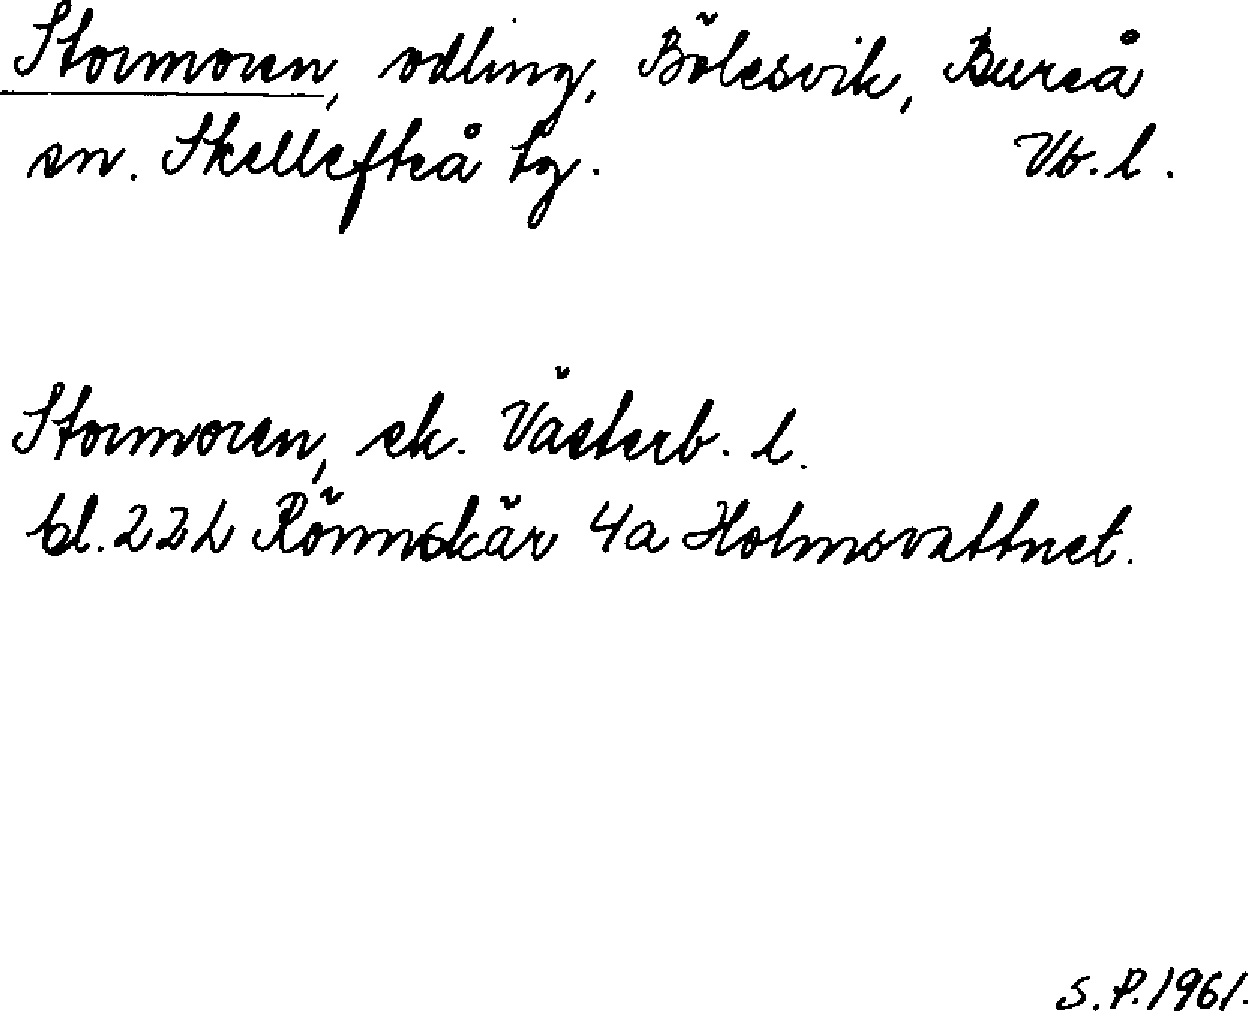 Stormoren, odling, Bölesvik, Bureå
sn. Skellefteå tg. Vb. l.
Stormoren, ek. Västerb. l.
bl. 22L Rönnskär 4a Holmsvattnet.
S.P. 1961.